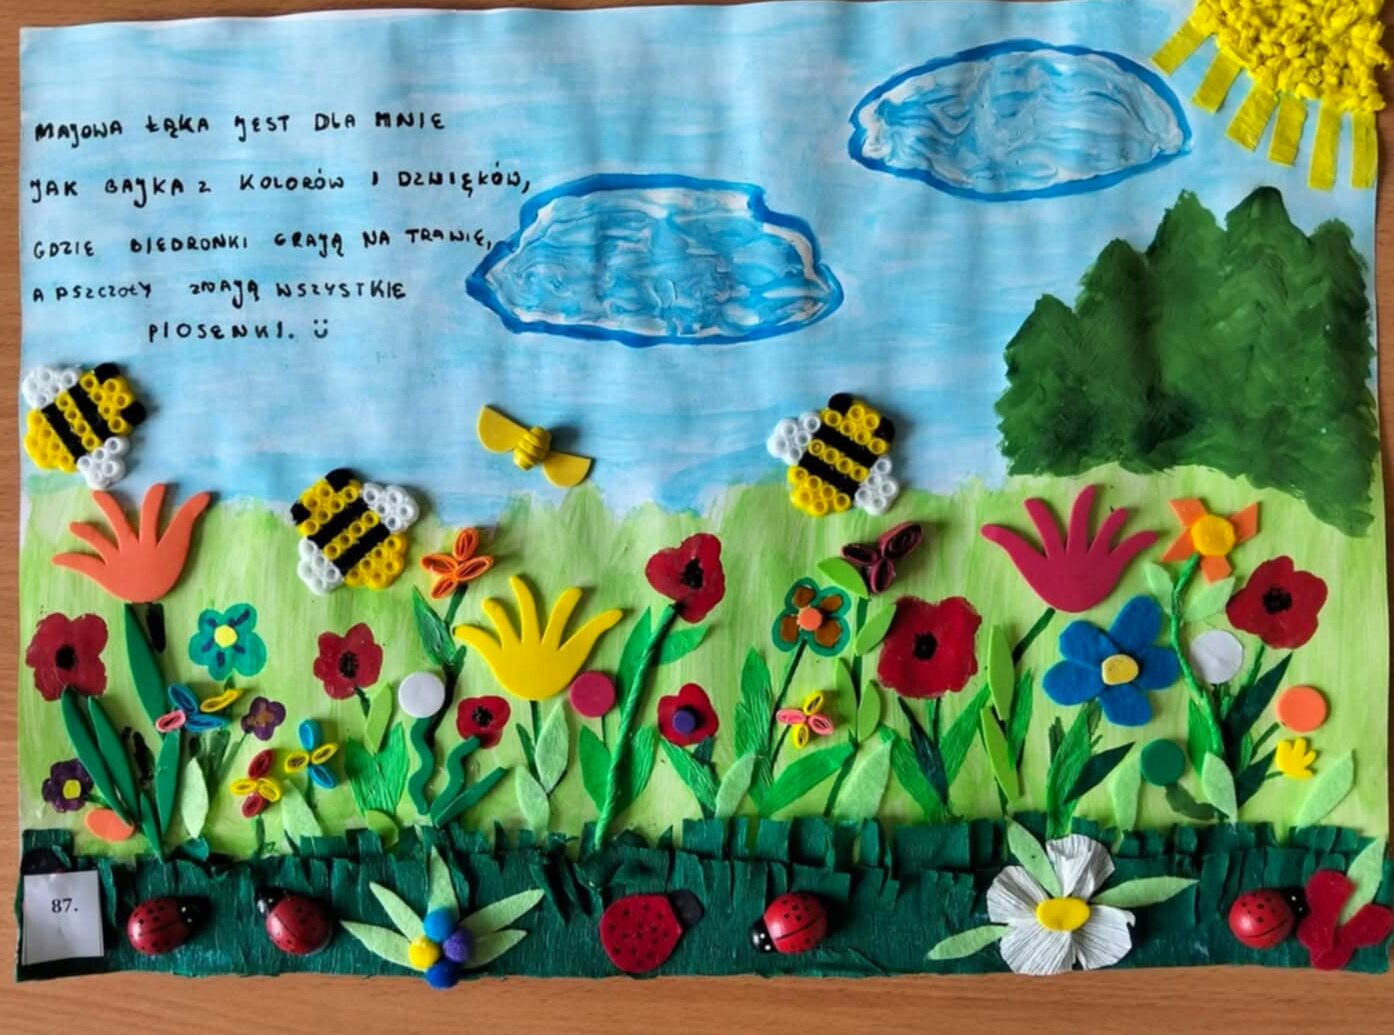 MAJOWA ŁĄKA JEST DLA MNIE
JAK BAJKA Z KOLORÓW I DŹWIĘKÓW,
GDZIE BIEDRONKI GRAJĄ NA TRAWIE,
A PSZCZOŁY ZNAJĄ WSZYSTKIE
PIOSENKI. :)
87.